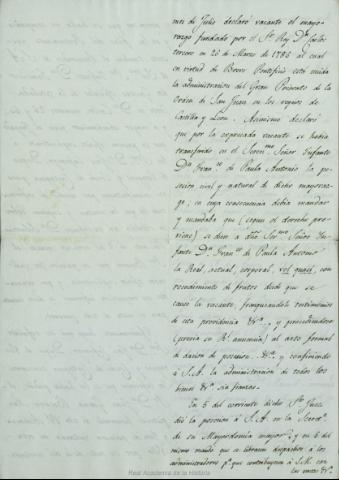 nes de Julio declaró vacante el mayo-
razgo fundado por el Sr. Rey Dn. Carlos
tercero en 26 de Marzo de 1785 al cual
en virtud de Breve Pontificio está unida
la administracion del Gran Priorato de la
Orden de San Juan en los reynos de
Castilla y Leon. Asimismo declaró
que por la expresada vacante se habia
transferido en el Serenmo. Señor Infante
Dn. Franco. de Paula Antonio la po-
sesion civil y natural de dicho mayoraz-
go; en cuya consecuencia debia mandar
y mandaba que (segun el derecho pre-
viene) se diese a dho. Sermo. Señor In-
fante Dn. Franco. de Paula Antonio
la Real, actual, corporal, vel quasi, con
recudimiento de frutos desde que se
causó la vacante, franqueandole testimonios
de esta providencia &ca., y procediendose
(previa su Rl. anuencia) al acto formal
de dacion de posesion &ca. y confiriendo
á S. A. la administracion de todos los
bienes &ca. sin fianzas.
En 5 del corriente dicho Sr. Juez
dió la posesion á S. A. en la Secreta.
de su Mayordomia mayor; y en 6 del
mismo mandó que se libraran despachos á los
administradores pa. que contribuyesen á S. A. con
las rentas &ca.
Real Academia de la Historia